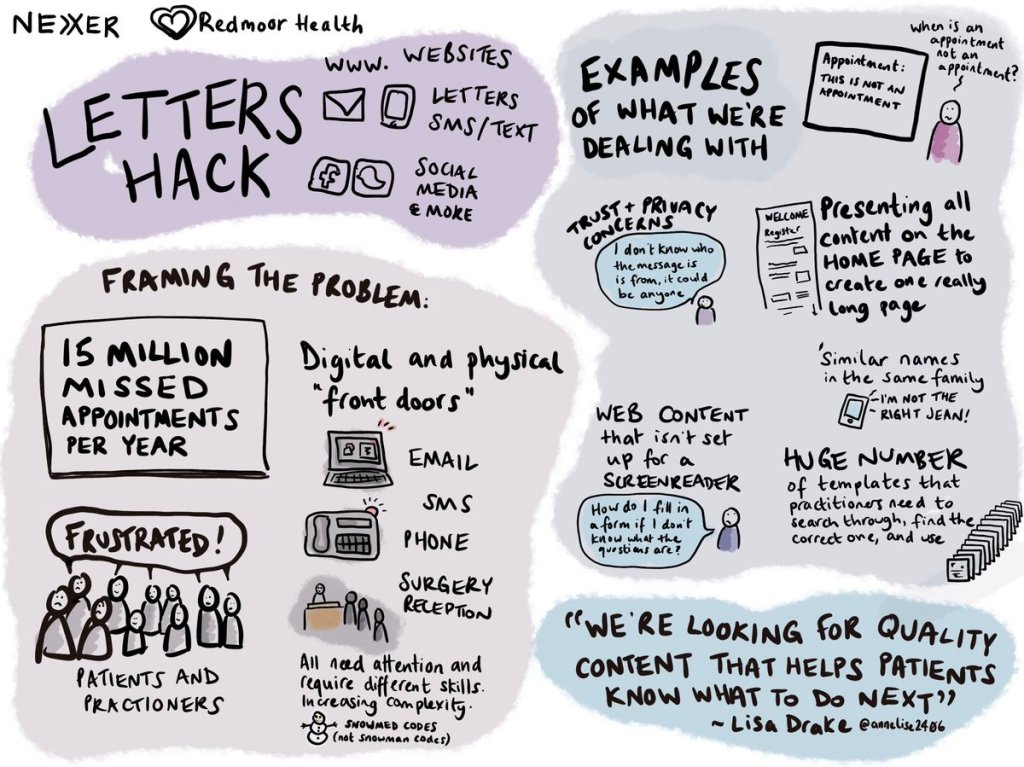 NEXER
Redmoor Health
LETTERS
HACK
WWW. WEBSITES
LETTERS
SMS/TEXT
SOCIAL
MEDIA
& MORE
FRAMING THE PROBLEM:
15 MILLION
MISSED
APPOINTMENTS
PER YEAR
FRUSTRATED!
PATIENTS AND
PRACTIONERS
Digital and physical
"front doors"
EMAIL
SMS
PHONE
SURGERY
RECEPTION
All need attention and
require different skills.
Increasing complexity.
SNOWMED CODES
(not snowman codes)
EXAMPLES
OF WHAT WE'RE
DEALING WITH
Appointment:
THIS IS NOT AN
APPOINTMENT
when is an
appointment
not an
appointment?
TRUST + PRIVACY
CONCERNS
I don't know who
the message is
is from, it could
be anyone
WELCOME
Register
Presenting all
content on the
HOME PAGE to
create one really
long page
'Similar names
in the same family
I'M NOT THE
RIGHT JEAN!
WEB CONTENT
that isn't set
up for a
SCREENREADER
How do I fill in
a form if I don't
know what the
questions are?
HUGE NUMBER
of templates that
practitioners need to
search through, find the
correct one, and use
"WE'RE LOOKING FOR QUALITY
CONTENT THAT HELPS PATIENTS
KNOW WHAT TO DO NEXT"
~ Lisa Drake @annelise2406